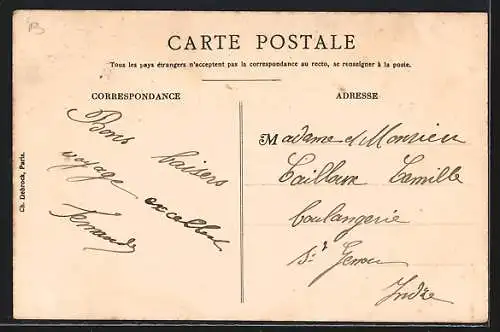 CARTE POSTALE
Tous les pays étrangers n'acceptent pas la correspondance au recto, se renseigner à la poste.
CORRESPONDANCE
ADRESSE
Bons baisers
voyage excellent
Fernande
Madame et Monsieur
Camille
boulangerie
St Genou
Indre
Ch. Debrock, Paris.